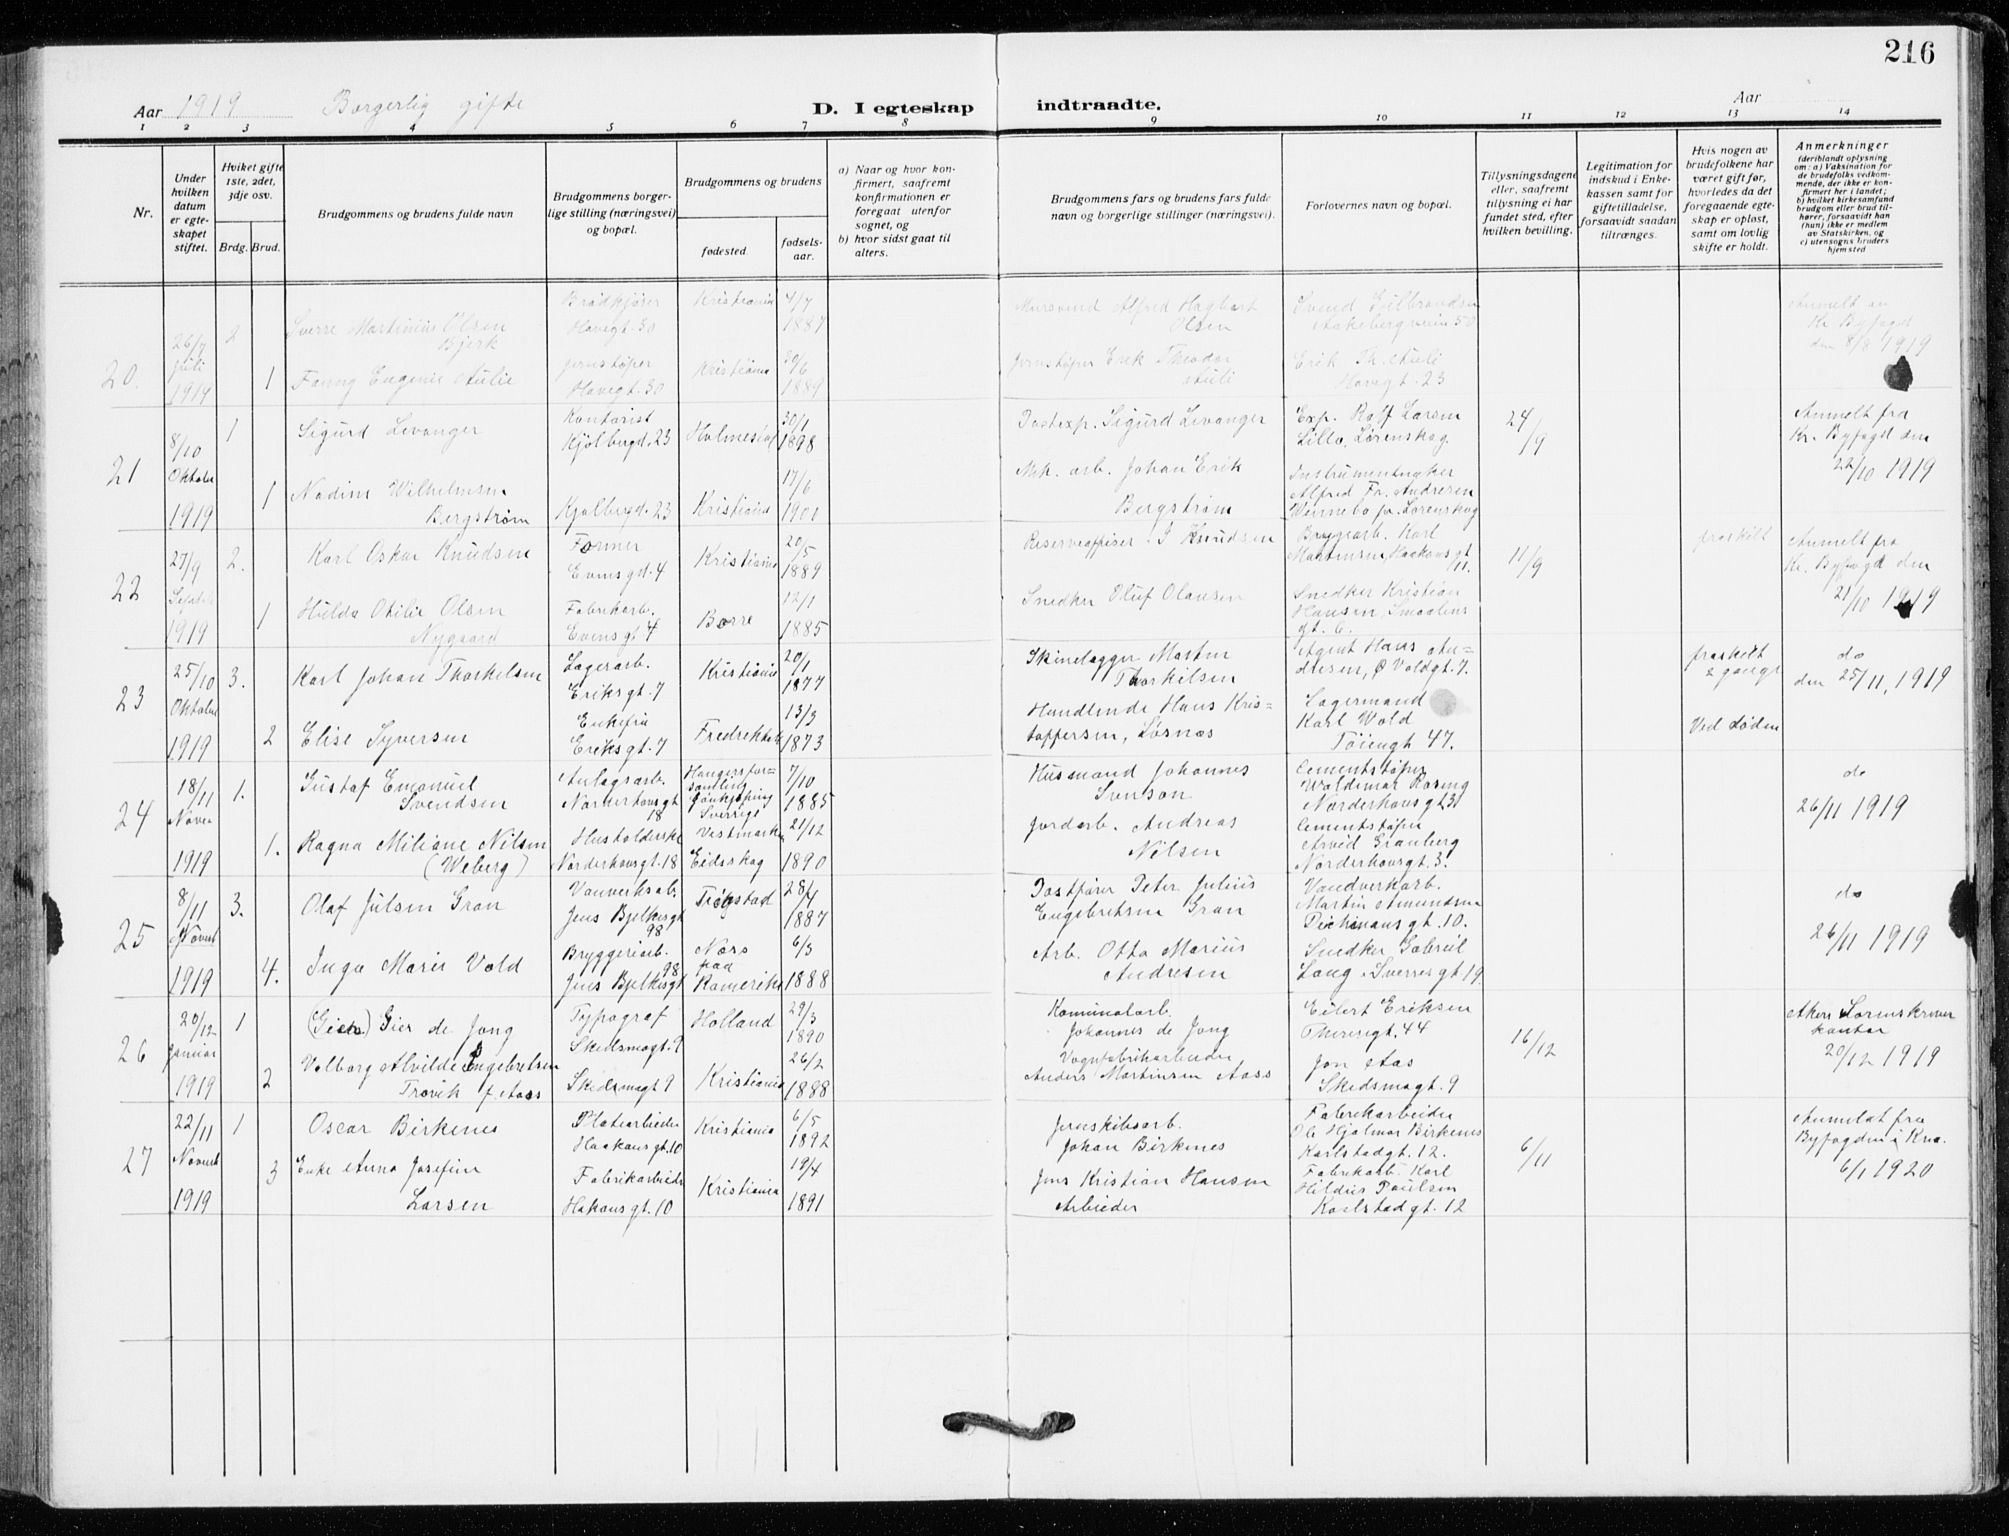 216
Aar 1919 Borgerlig gifte D. I egteskap indtraadte. Aar
1 2 3 4 5 6 7 8 9 10 11 12 13 14
Nr.
Under hvilken datum er egteskapet stiftet.
Hviket gifte 1ste, 2det, 3dje osv.
Brdg. Brud.
Brudgommens og brudens fulde navn
Brudgommens borgerlige stilling (næringsvei) og bopæl.
Brudgommens og brudens
fødested.
fødselsaar.
a) Naar og hvor konfirmert, saafremt konfirmationen er foregaat utenfor sognet, og
b) hvor sidst gaat til alters.
Brudgommens fars og brudens fars fulde navn og borgerlige stillinger (næringsvei).
Forlovernes navn og bopæl.
Tillysningsdagene eller, saafremt tillysning ei har fundet sted, efter hvilken bevilling.
Legitimation for indskud i Enkekassen samt for giftetilladelse, forsaavidt saadan tiltrænges.
Hvis nogen av brudefolkene har været gift før, hvorledes da det foregaaende egteskap er opløst, samt om lovlig skifte er holdt.
Anmerkninger (deriblandt oplysning om: a) Vaksination for de brudefolks vedkommende, der ikke er konfirmert her i landet; b) hvilket kirkesamfund brudgom eller brud tilhører, forsaavidt han (hun) ikke er medlem av Statskirken, og c) utensogns bruders hjemsted
20.
26/7 Juli 1919
2
Sverre Martinius Olsen Bjerk
Brødkjører Havegt. 30
Kristiania
4/7 1887
Alfred Hagbart Olsen
Svend Gulbrandsen Aakebergveien 50
Anmelt av Kr. Byfogd den 8/8 1919
1
Fanny Eugenie Auli
Jernstøper Havegt. 30
Kristiania
30/6 1889
Jernstøper Erik Theodor Auli
Erik Th. Auli Havegt. 23
21
8/10 Oktober 1919
1
Sigurd Levanger
Kontorist Kjølbergd. 23
Holmestad
30/1 1898
Postexp. Sigurd Levanger
Exp. Rolf Larsen Lille, Lørenskog
24/9
Anmelt fra Kr. Byfogd den 22/10 1919
1
Nadine Wilhelmsen Bergstrøm
Kjølbergd. 23
Kristiania
17/6 1900
Mek. arb. Johan Erik Bergstrøm
Alfred Fr. Andresen
Lørenskog
22
27/9 1919
2.
Karl Oskar Knudsen
Former Evensgd. 4
Kristiania
20/5 1889
Reserveoffiser J Knudsen
Bryggearb. Karl Martinsen, Haakonsgt 11.
11/9
fraskilt
Anmelt fra Kr. Byfogd den 21/10 1919
1
Hilda Otilie Olsen Nygaard
Fabrikarb. Evensgt 4
Borre
12/1 1885
Snedker Oluf Olausen
Snedker Kristian Hansen, Smaalens gt. 6.
23
25/10 Oktober 1919
3.
Karl Johan Thorkelsen
Lagerarb. Eriksgt. 7
Kristiania
20/1 1877
Martin Thorkilsen
Agent Hans Andresen, Ø Voldgt. 7.
fraskilt 2 gange
do den 25/11, 1919
2
Elise Syversen
Enkefru Eriksgt. 7
13/3 1873
Handlende Hans Kristoffersen, Løsnæs
Lagermand Karl Wold Tøiengt 47.
Ved døden
24
18/11 1919
1.
Gustaf Emanuel Svendsen
Anlægsarb. Norderhovsgt 18
Jønkjøping Sverrige
7/10 1885
Husmand Johannes Svenson
Cementstøper Waldemar Rosing Norderhovsgt 3.
do 26/11 1919
1.
Ragna Miliane Nilsen (Weberg)
Husholderske Norderhovsgt. 18
Vestmarken Eidsskog
21/12 1890
Jordarb. Andreas Nilsen
Cementstøper Arvid Granberg Norderhovsgt. 3.
25
8/11 Novbr 1919
3.
Olaf Julsen Gran
Jens Bjelkesgt 98
Trøgstad
28/4 1887
Postfører Peter Julius Engebretsen Gran
Vandverkarb. Martin Amundsen gt. 10.
do 26/11 1919
4.
Inga Marie Vold
Bryggeriarb. Jens Bjelkesgt 98
Næs paa Romerike
6/3 1888
Arb. Otto Marius Andresen
Snedker Gabriel Lang. Sverresgt 19
26
20/12 Januar 1919
1
Gier de Jong
Typograf Skedsmogt. 9
Holland
29/3 1890
Komunalarb. Johannes de Jong
Eilert Eriksen Theresgt. 44
16/12
Akers Sorenskriverkontor 20/12 1919
2
Valborg Alvilde Engebretsen Trøvik f. Aass
Skedsmogt 9
Kristiania
26/2 1888
Vognfabrikarbeider Anders Martinsen Aass
Jon Aas Skedsmogt. 9
27
22/11 Novbr 1919
1
Oscar Birkenes
Platearbeider Haakonsgt. 10
Kristiania
6/5 1892
Jernskibsarb. Johan Birkenes
Fabrikarbeider Ole Hjalmar Birkenes Karlstadgt. 12.
6/11
Anmeldt fra Byfogden i Kra. 6/1 1920
3
Enke Anna Josefine Larsen
Fabrikarbeider Hakonsgt. 10
Kristiania
19/4 1891
Jens Kristian Hansen Arbeider
Fabrikarb. Karl Hildur Paulsen Karlstadgt. 12